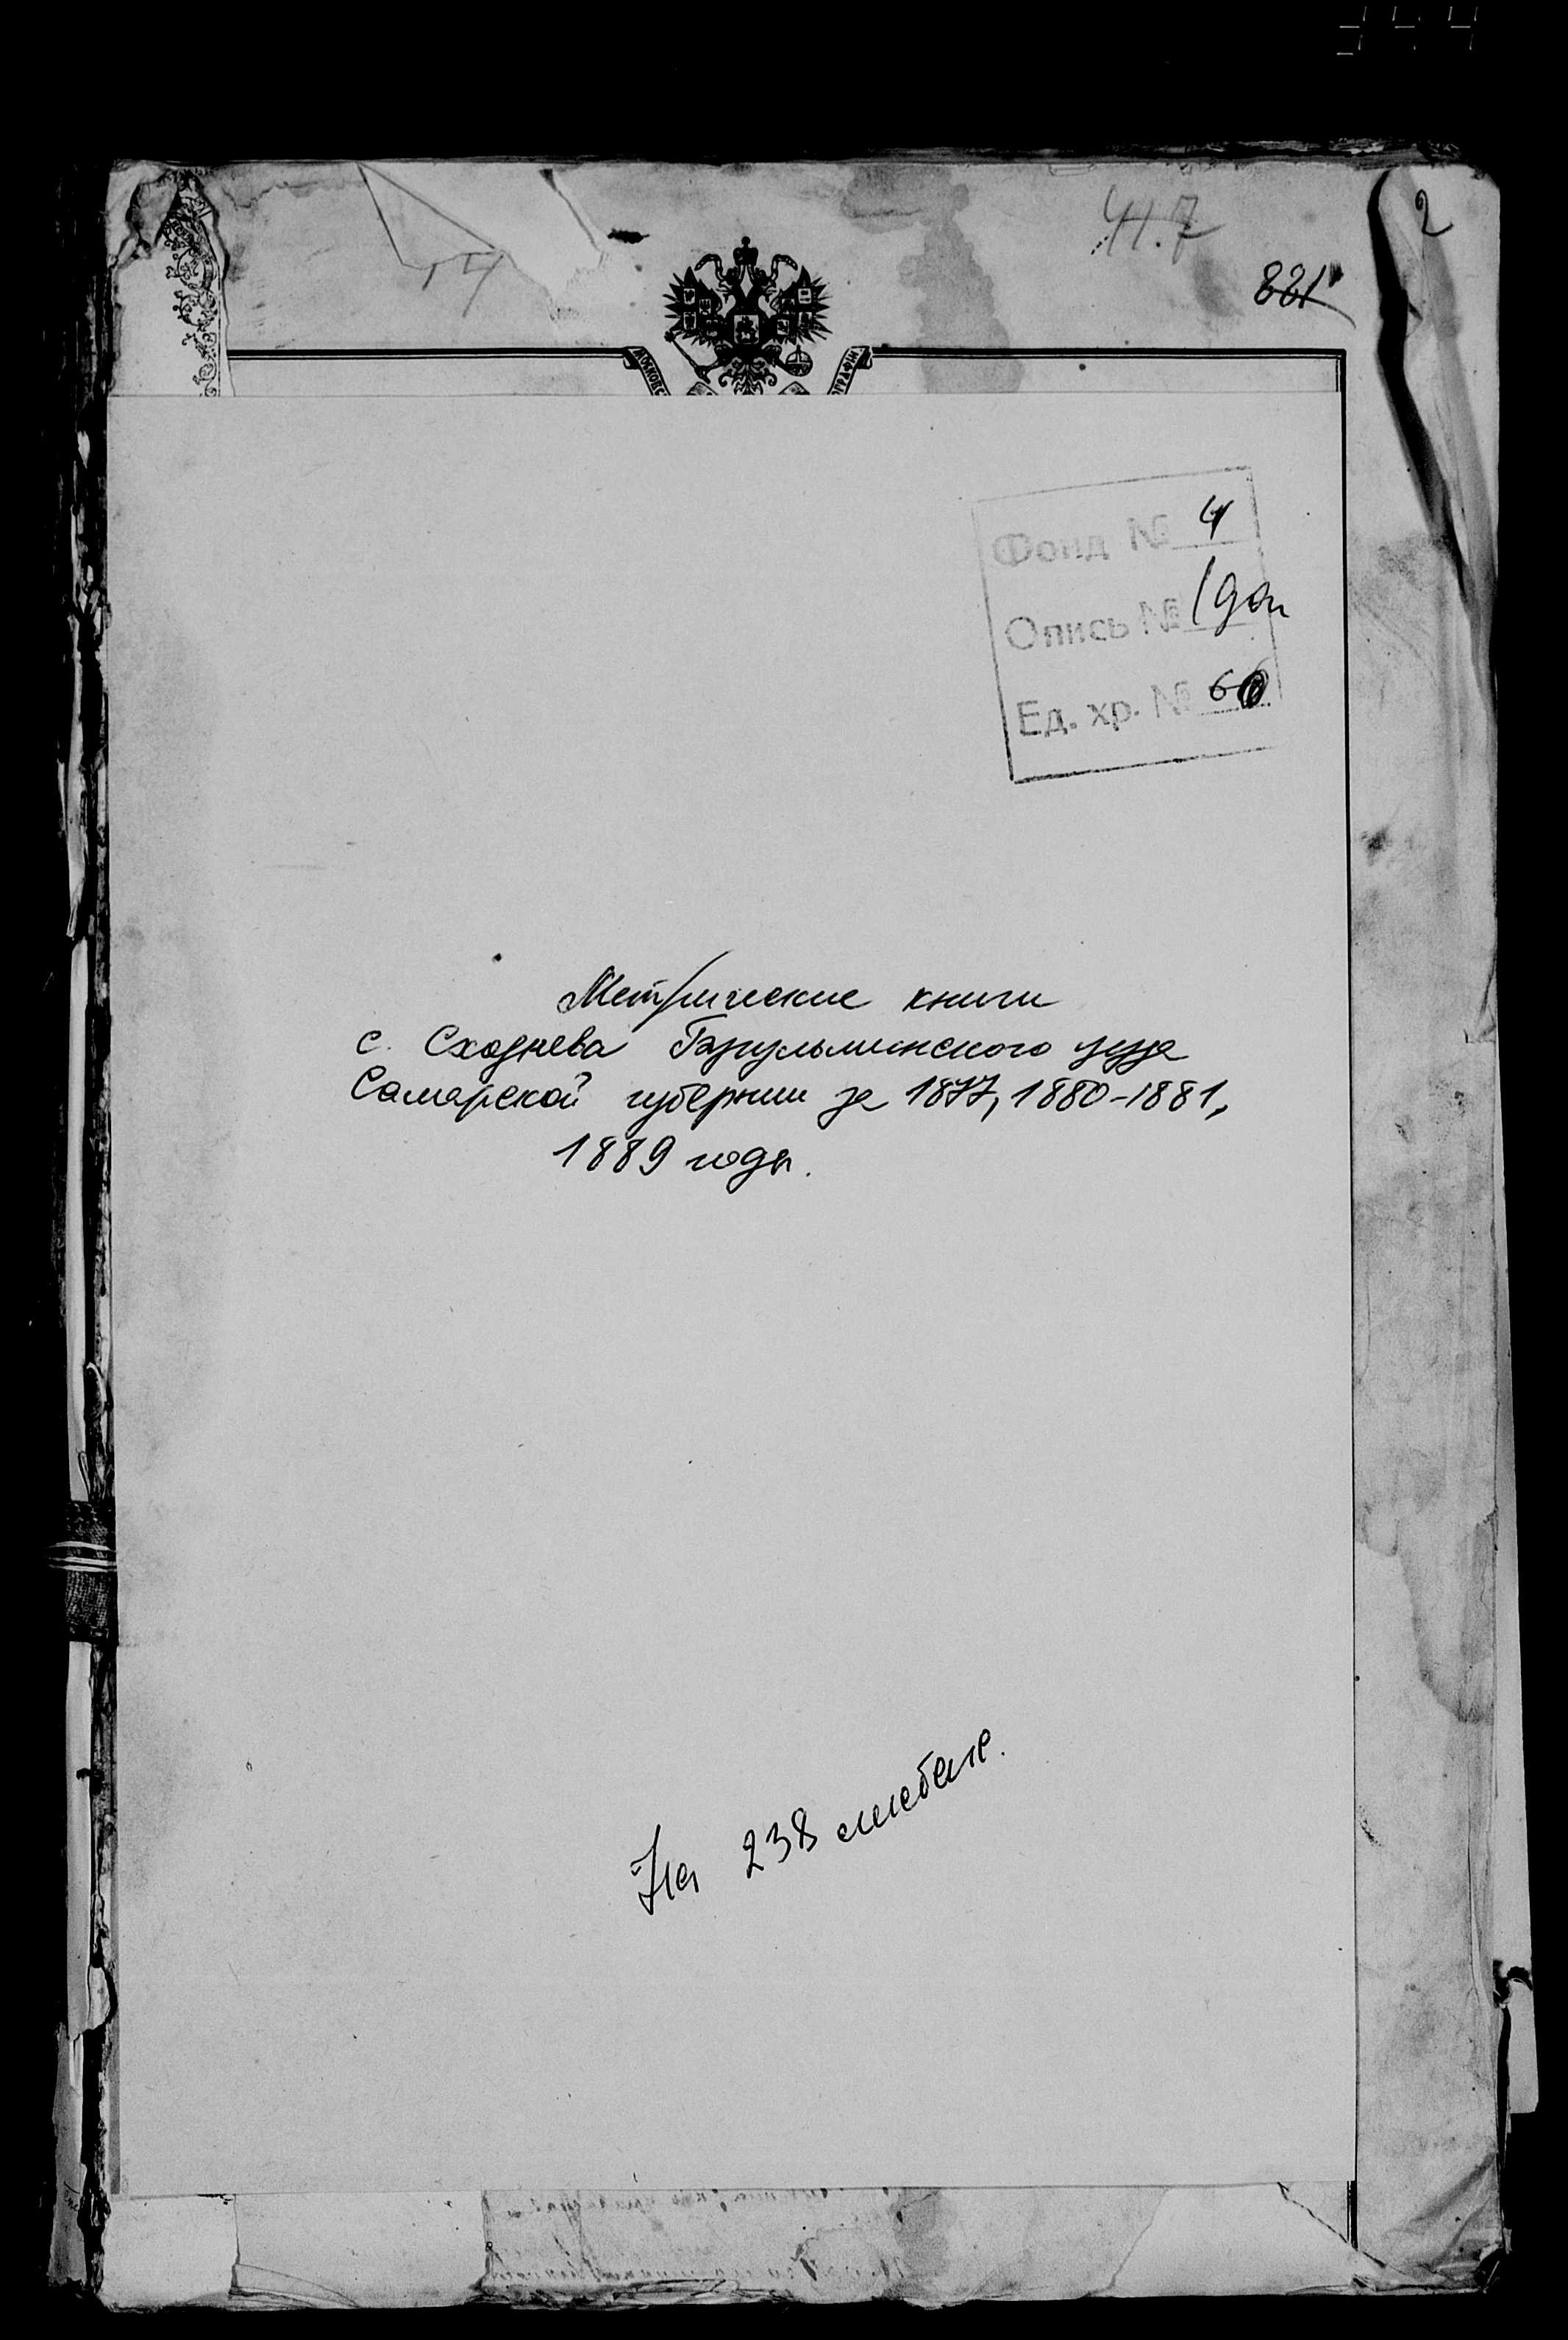 2
41.7
881
14
МОСКОВС
ОГРАФІИ
Фонд № 4
Опись № 1 доп
Ед. хр. №
Метрические книги
с. Сходнева Бугульминского уезда
Самарской губернии за 1877, 1880-1881,
1889 годы.
На 238 листах.